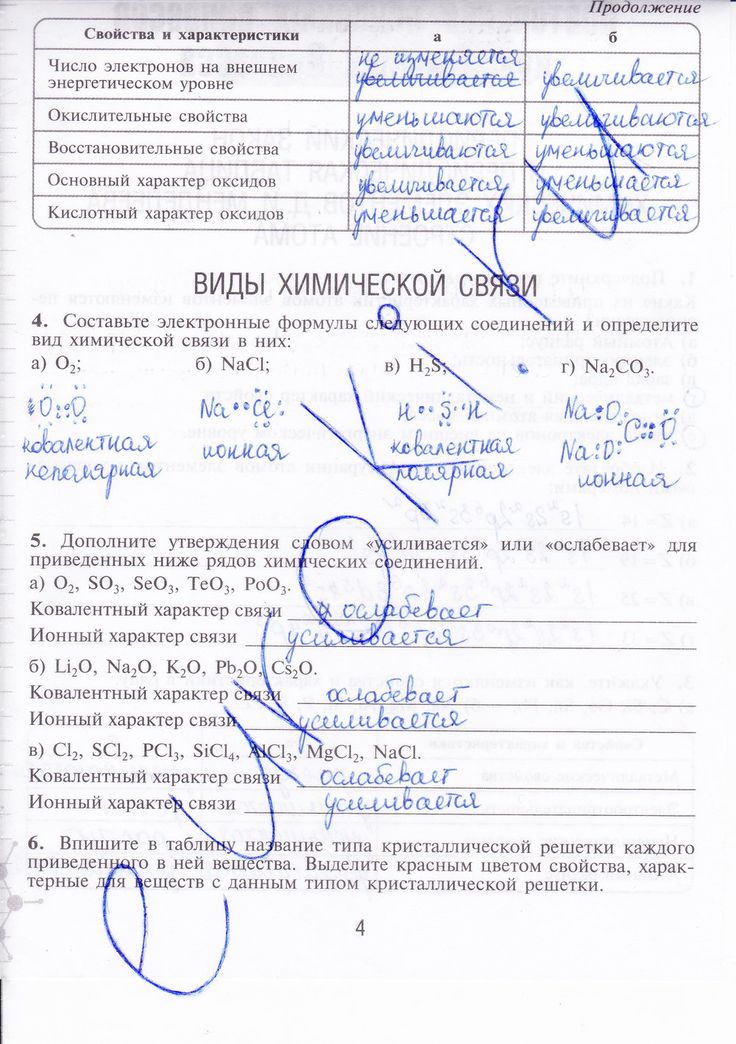 Продолжение
Свойства и характеристики а б
не изменяется
Число электронов на внешнем энергетическом уровне увеличивается увеличивается
Окислительные свойства уменьшаются увеличиваются
Восстановительные свойства увеличиваются уменьшаются
Основный характер оксидов увеличивается уменьшается
Кислотный характер оксидов уменьшается увеличивается
ВИДЫ ХИМИЧЕСКОЙ СВЯЗИ
4. Составьте электронные формулы следующих соединений и определите
вид химической связи в них:
а) O₂; б) NaCl; в) H₂S; г) Na₂CO₃.
:O::O: Na··Cl: H··S··H Na··O:
C::O
Na··O:
ковалентная ионная ковалентная ионная
неполярная полярная
5. Дополните утверждения словом «усиливается» или «ослабевает» для
приведенных ниже рядов химических соединений.
а) O₂, SO₃, SeO₃, TeO₃, PoO₃.
Ковалентный характер связи ослабевает
Ионный характер связи усиливается
б) Li₂O, Na₂O, K₂O, Pb₂O, Cs₂O.
Ковалентный характер связи ослабевает
Ионный характер связи усиливается
в) Cl₂, SCl₂, PCl₃, SiCl₄, AlCl₃, MgCl₂, NaCl.
Ковалентный характер связи ослабевает
Ионный характер связи усиливается
6. Впишите в таблицу название типа кристаллической решетки каждого
приведенного в ней вещества. Выделите красным цветом свойства, харак-
терные для веществ с данным типом кристаллической решетки.
4